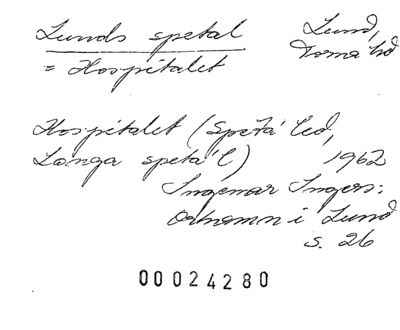 Lunds spetal
= Hospitalet
Lund,
Torna hd
Hospitalet (Speta´led,
Långa speta´l) 1962
Ingemar Ingers:
Ortnamn i Lund
s. 26
00024280